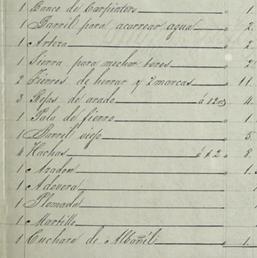 1 Banco de Carpintero 1.
1 Barril para acarrear agua 2.
1 Artesa
1 Sierra para mochar toros 2.
2 Fierros de herrar y 2 marcas 11
3 Rejas de arado á 12 4.
1 Pala de fierro 1.
1 Barril viejo 5
4 Hachas á £ 2 8.
1 Azadon 1.
1 Adovera
1 Plomada
1 Martillo
1 Cuchara de Albañil 1.